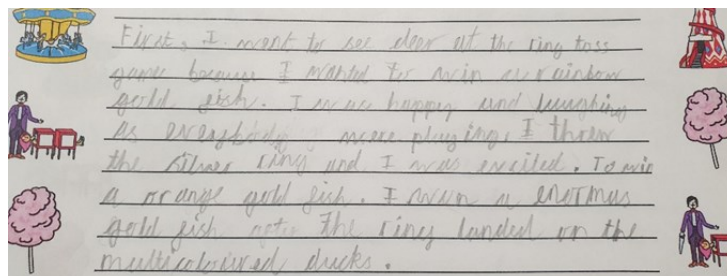 First, I went to see deer at the ring toss
game because I wanted to win a rainbow
gold fish. I was happy and laughing
as everybody were playing. I threw
the silver ring and I was excited. To win
a orange gold fish. I win a enormus
gold fish after the ring landed on the
multicoloured ducks.